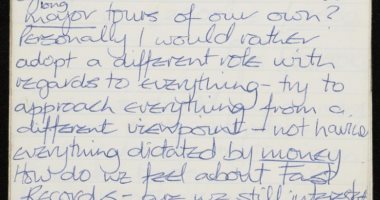 long
major tours of our own?
Personally I would rather
adopt a different role with
regards to everything – try to
approach everything from a
different viewpoint – not having
everything dictated by money
How do we feel about Fast
Records – are we still interested